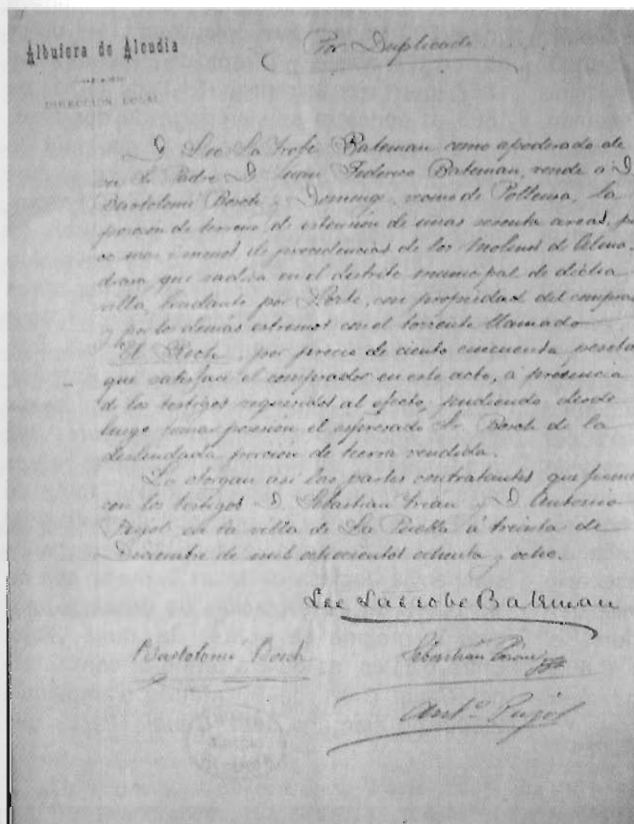 Albufera de Alcudia
DIRECCION LOCAL
Por Duplicado
D. Lee La Trobe Bateman como apoderado de
su Sr. Padre D. Juan Federico Bateman, vende á D.
Bartolomé Bosch y Domingo, vecino de Pollensa, la
porción de terreno de estensión de unas sesenta areas, po-
co mas ó menos de procedencias de los Molinos de
que radica en el distrito municipal de dicha
villa, lindante por Norte, con propriedad del comprador
y por los demás estremos con el torrente llamado
El Rech, por precio de ciento cincuenta pesetas
que satisface el comprador en este acto, á presencia
de los testigos requeridos al efecto, pudiendo desde
luego tomar posesión el espresado Sr. Bosch de la
deslindada porción de tierra vendida.
Lo otorgan así las partes contratantes que firman
con los testigos D. Sebastián y D. Antonio
Pujol en la villa de La Puebla á treinta de
Diciembre de mil ochocientos ochenta y ocho.
Lee La Trobe Bateman
Bartolomé Bosch
Sebastian
Ant.º Pujol